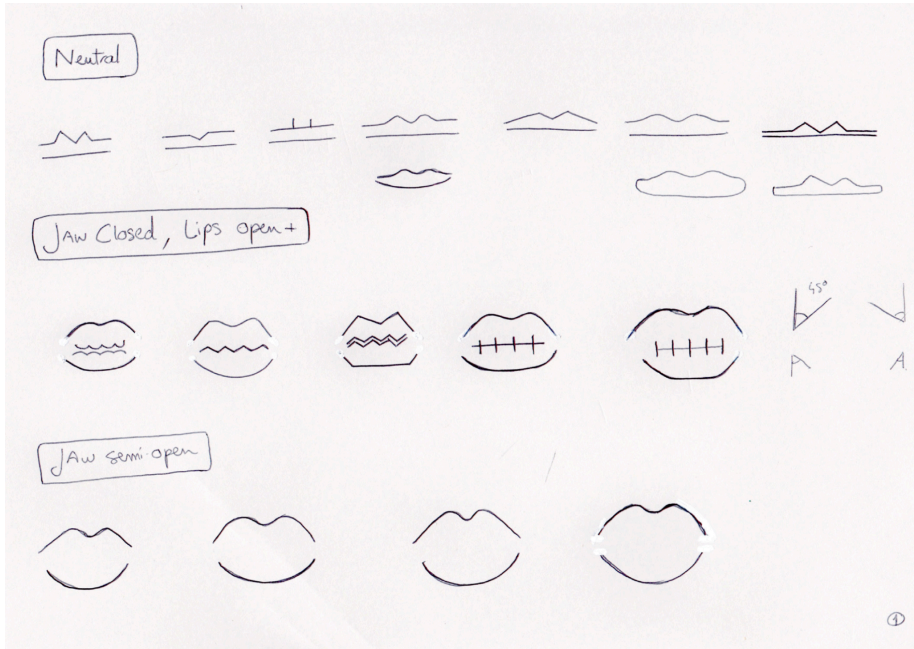 Neutral
JAW Closed, Lips open+
45°
A A
JAW semi-open
1